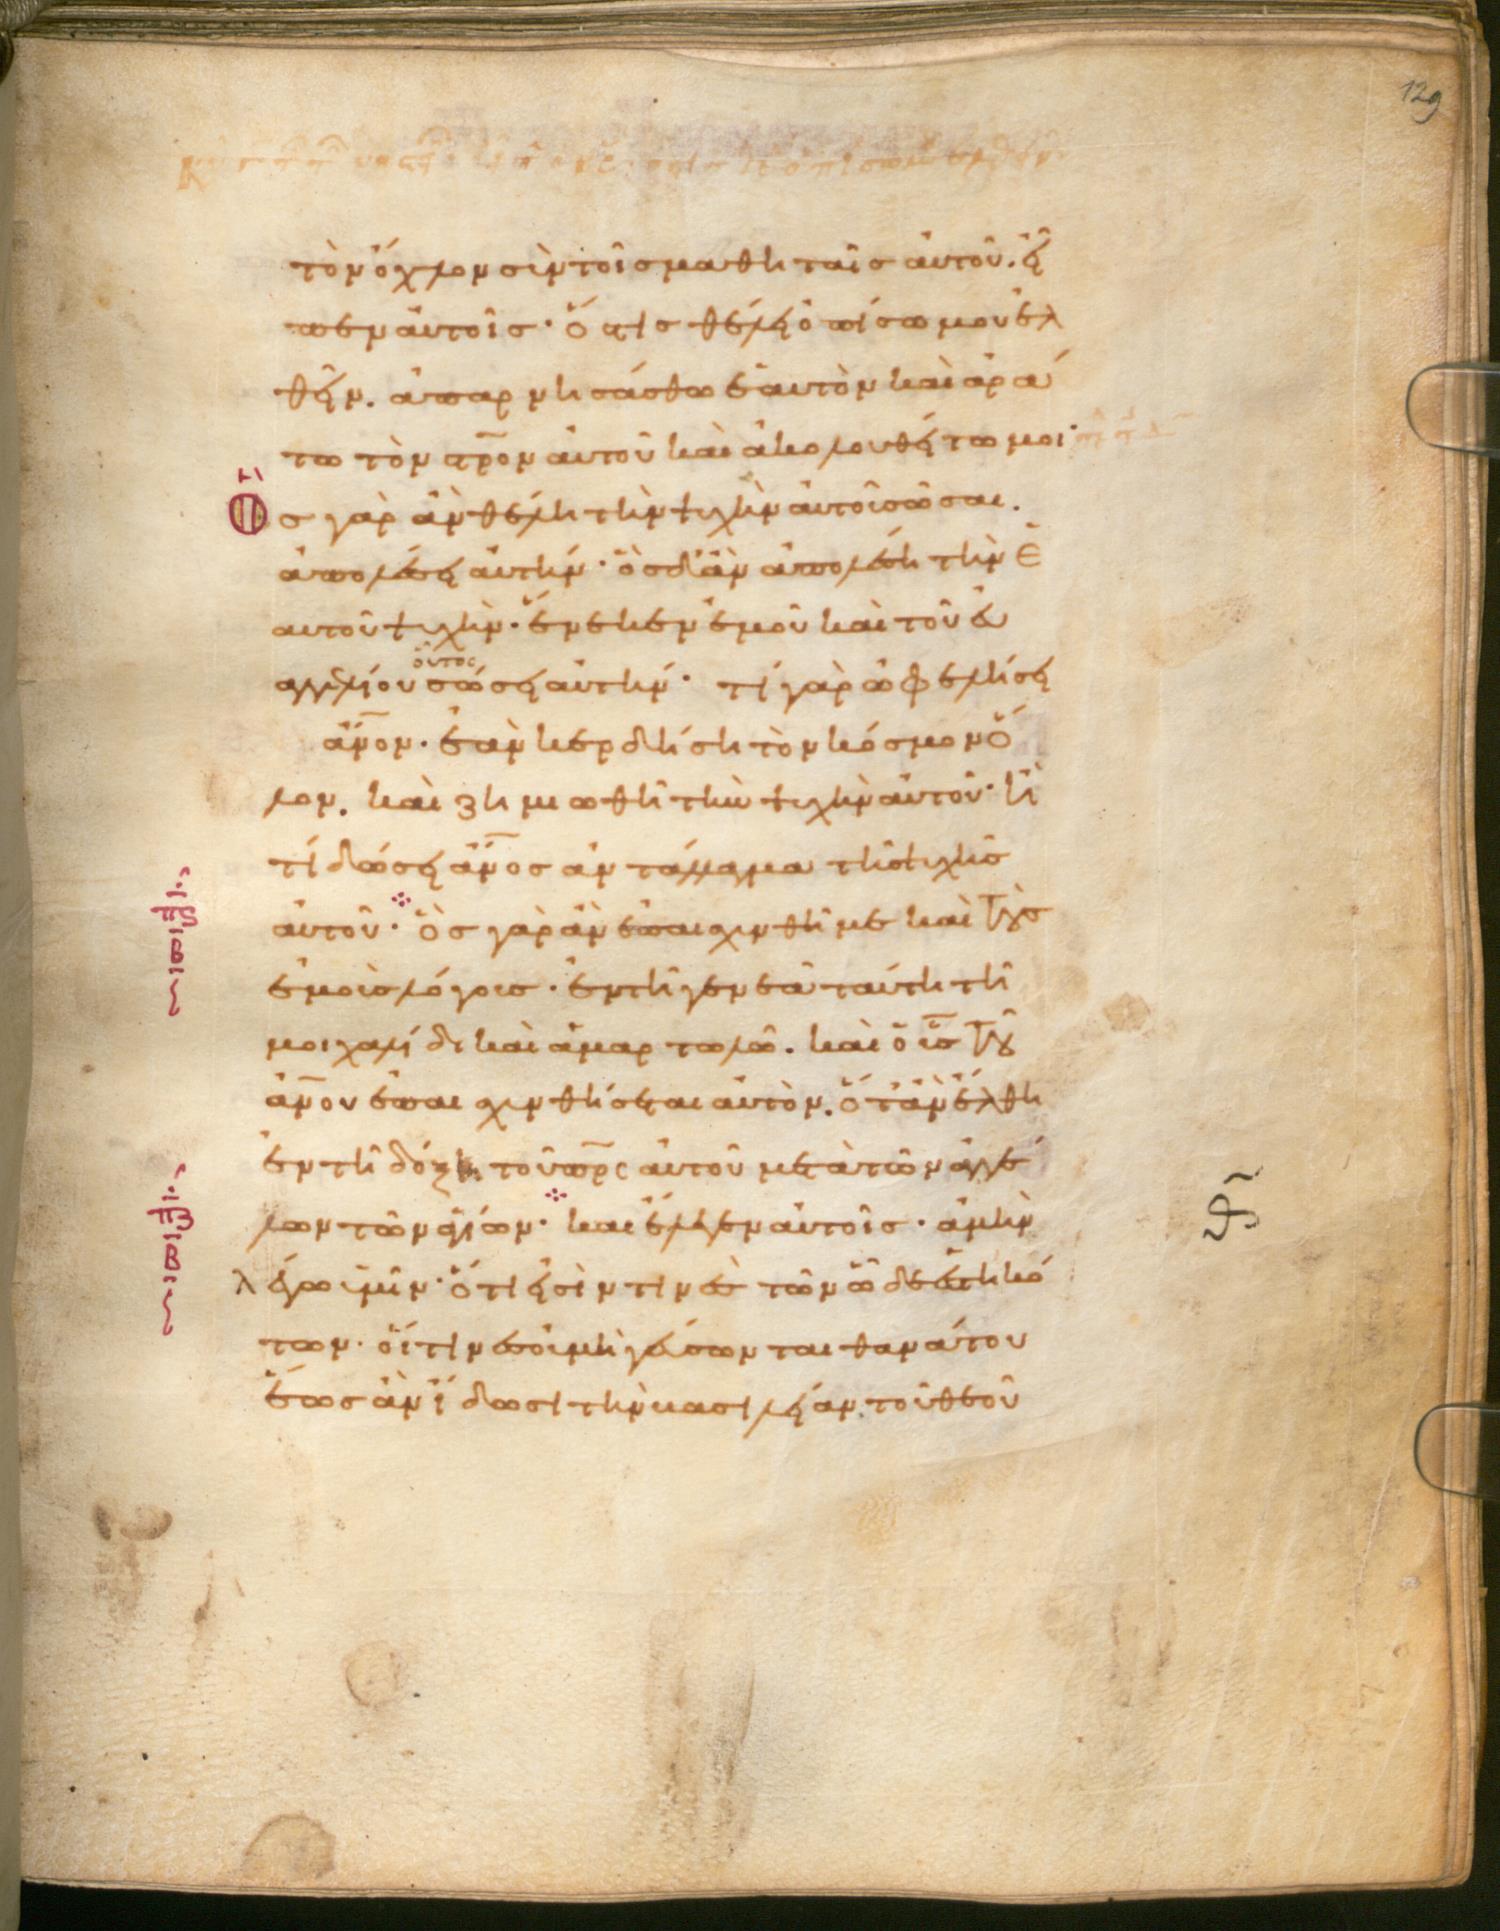 129
τὸν ὄχλον σὺν τοῖς μαθηταῖς αὐτοῦ. εἶ
πεν αὐτοῖς· ὅστις θέλει ὀπίσω μου ἐλ
θεῖν. ἀπαρνησάσθω ἑαυτὸν καὶ ἀρά
τω τὸν σ̅ρ̅ον αὐτοῦ καὶ ἀκολουθείτω μοι·
Ὃς γὰρ ἂν θέλη τὴν ψυχὴν αὐτοῦ σῶσαι.
ἀπολέσει αὐτήν· ὃς δ' ἂν ἀπολέση τὴν ἑ
αυτοῦ ψυχὴν· ἕνεκεν ἐμοῦ καὶ τοῦ εὐ
αγγελίου οὗτος σώσει αὐτήν· τί γὰρ ὠφελήσει
ἄν̅ον· ἐὰν κερδήση τὸν κόσμον ὅ
λον. καὶ ζημιωθῆ τὴν ψυχὴν αὐτοῦ· ἢ
τί δώσει ἄν̅ος ἀντάλλαγμα τῆς ψυχῆς
αὐτοῦ· ὃς γὰρ ἂν ἐπαισχυνθῆ με καὶ τοὺς
ἐμοὺς λόγους· ἐν τῆ γενεᾶ ταύτη τῆ
μοιχαλίδι καὶ ἁμαρτωλῶ. καὶ ὁ υἱ̅ς τοῦ
ἀν̅ου ἐπαισχυνθήσεται αὐτὸν. ὅταν ἔλθη
ἐν τῆ δόξη τοῦ π̅ρ̅ς αὐτοῦ μετὰ τῶν ἀγγέ
λων τῶν ἁγίων· καὶ ἔλεγεν αὐτοῖς· ἀμὴν
λέγω ὑμῖν· ὅτι εἰσίν τινες τῶν ὧδε ἑστηκό
των· οἵτινες οὐ μὴ γεύσωνται θανάτου
ἕως ἂν ἴδωσι τὴν βασιλείαν τοῦ θεοῦ